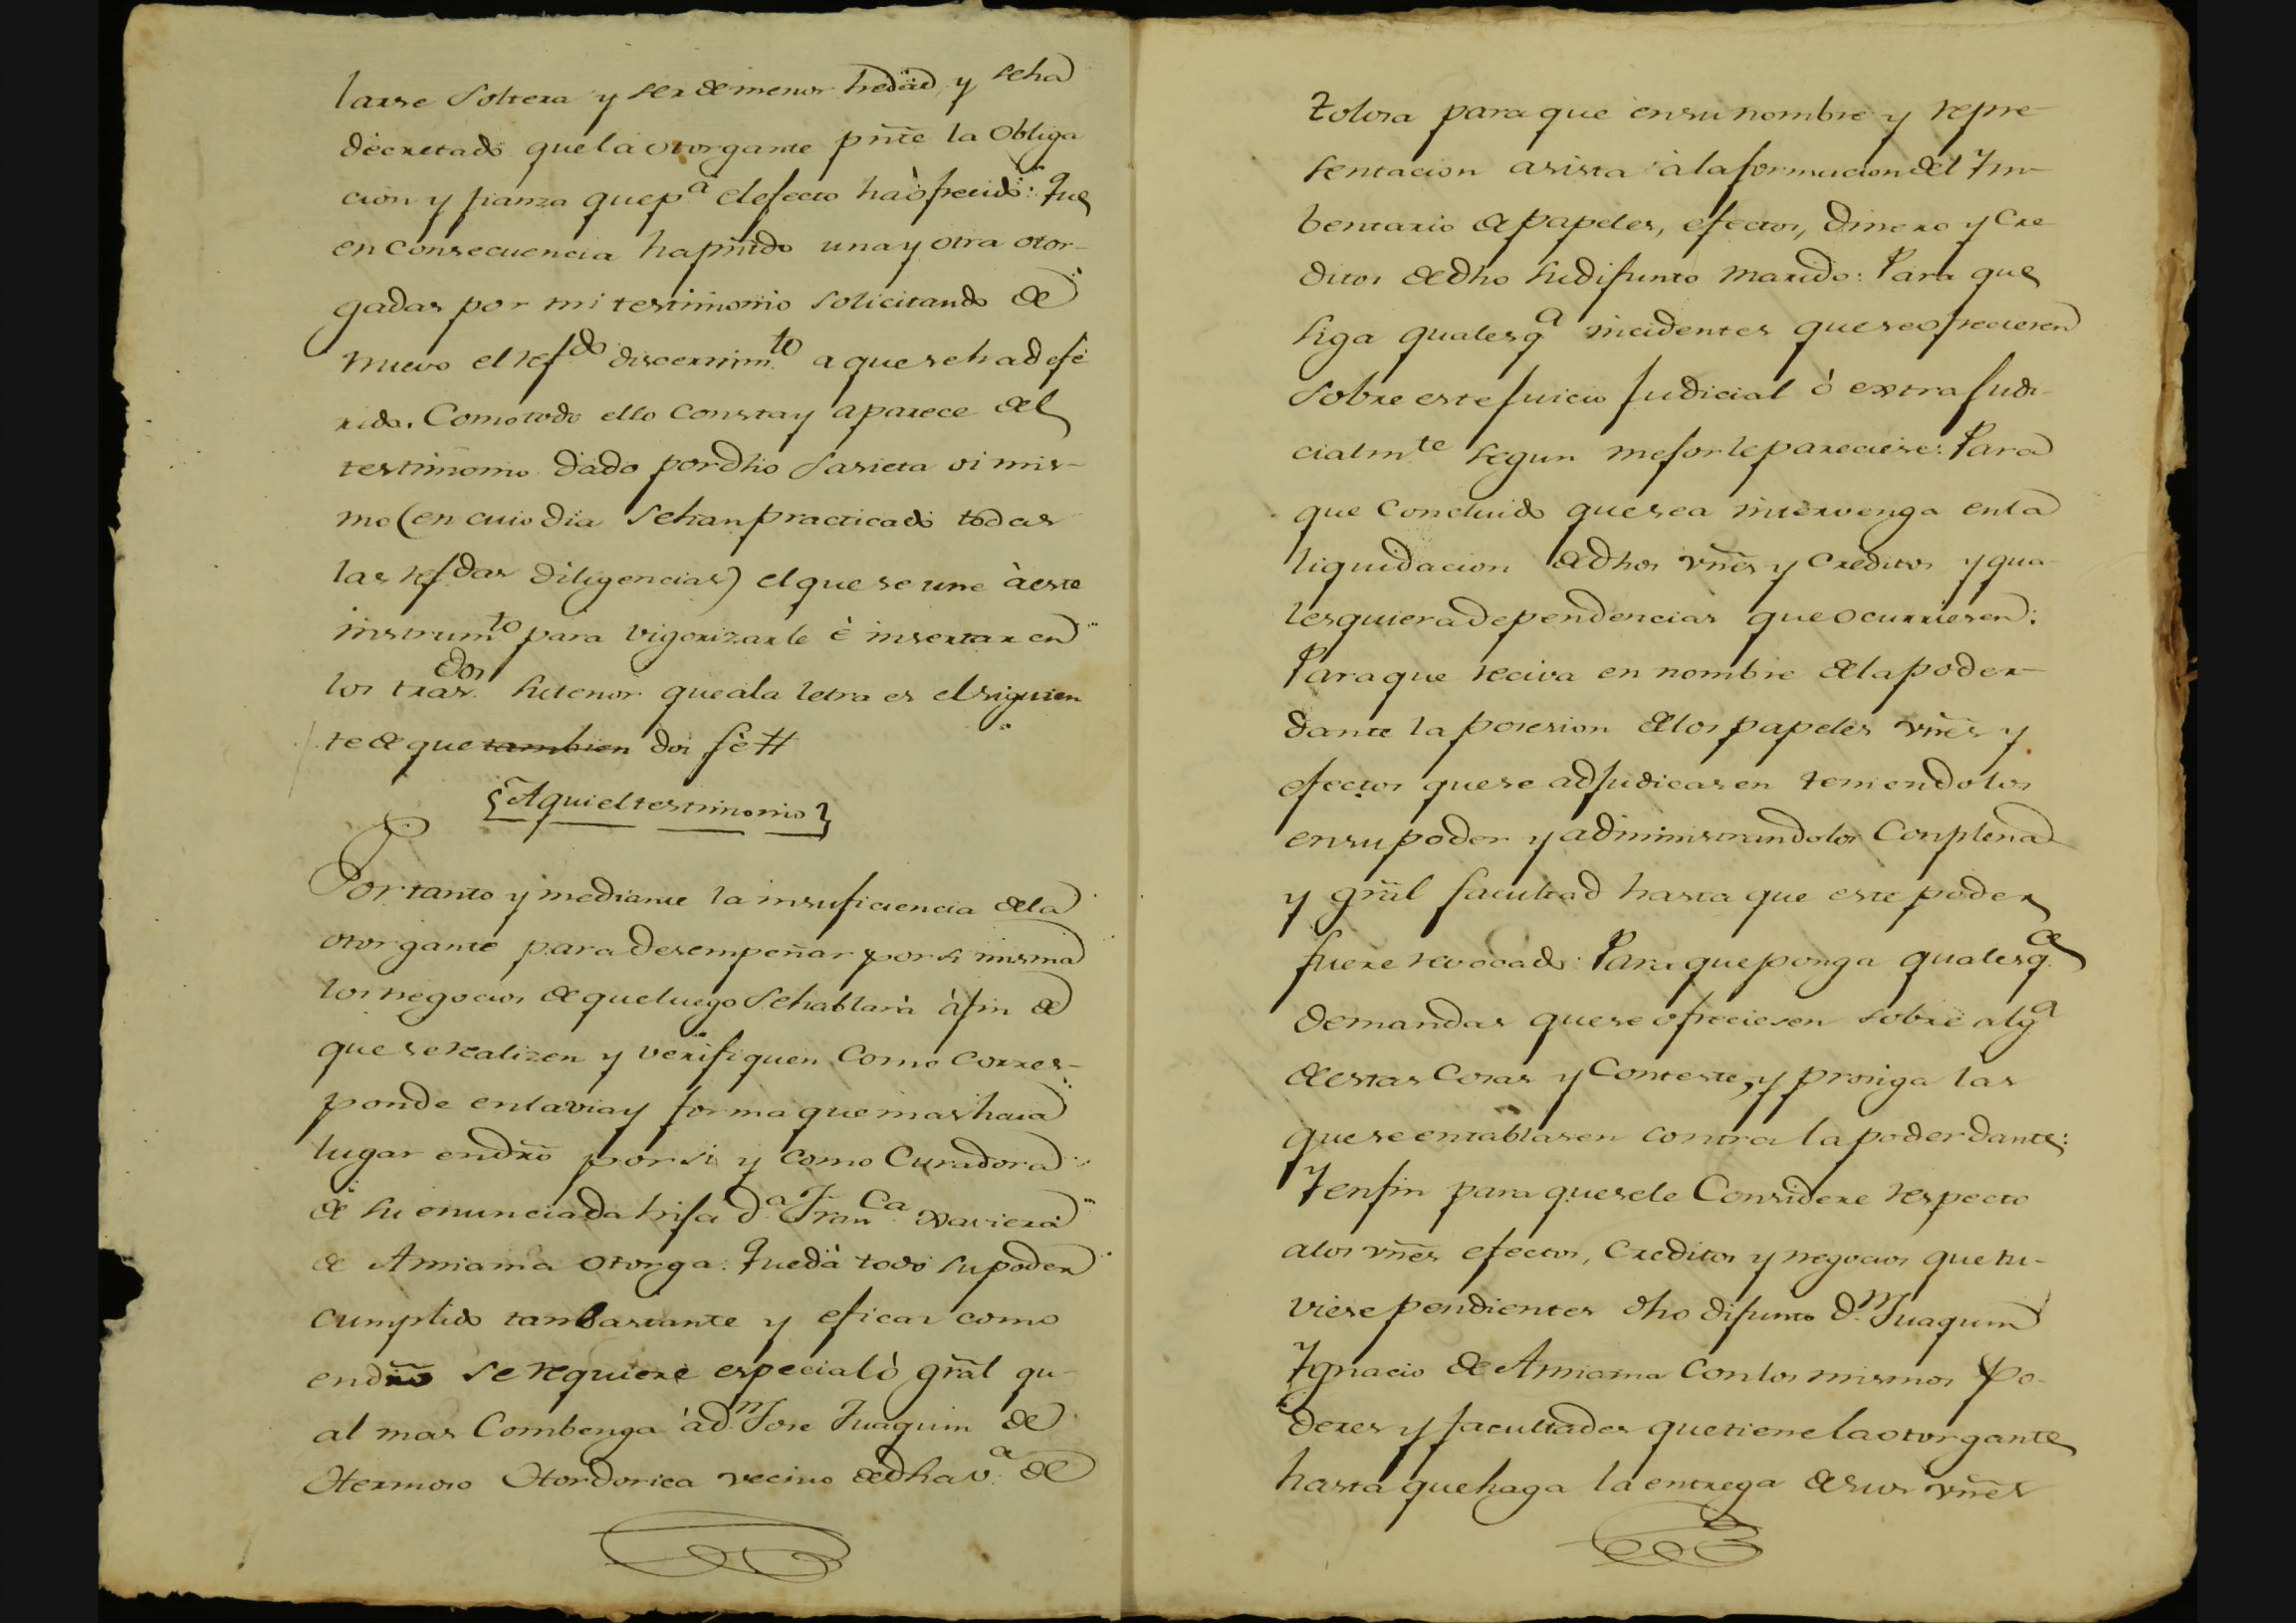 larse soltera y ser de menor hedad, y se ha
decretado que la otorgante pñte la Obliga
cion y fianza que pª el efecto ha ofrecido: Que
en consecuencia ha pñtdo una y otra otor-
gadas por mi testimonio solicitando de
nuevo el refdo discernimto a que se ha defe
rido. Como todo ello consta y aparece del
testimonio dado por dho Sarieta oi mis-
mo (en cuio dia se han practicado todas
las refdas diligencias) el que se une à este
instrumto para vigorizarle è insertar en
los trasdos su tenor que a la letra es el siguien
te de que tambien doi fè #
{Aqui el testimonio}
Por tanto y mediante la insuficiencia de la
otorgante para desempeñar por si misma
los negocios de que luego se hablarà à fin de
que se realizen y verifiquen como corres-
ponde en la via y forma que mas haia
lugar en dro por si y como Curadora
de su enunciada hija dª Franca Xaviera
de Amiama otorga: Que dà todo su poder
cumplido tan bastante y eficaz como
en dro se requiere especial ò gral qu-
al mas combenga à dn Jose Juaquin de
Hermoso Hordorica vecino de dha vª de
Tolosa para que en su nombre y repre-
sentacion asista à la formacion del Im-
bentario de papeles, efectos, dinero y cre
ditos de dho su difunto marido: Para que
siga qualesqª incidentes que se ofrecieren
sobre este juicio judicial ò extrajudi-
cialmte segun mejor le pareciese: Para
que concluido que sea intervenga en la
liquidacion de dhos vñes y creditos y qua-
lesquiera dependencias que ocurriesen:
Para que reciva en nombre de la poder-
dante la posesion de los papeles vñes y
efectos que se adjudicasen teniendolos
en su poder y administrandolos con plena
y gral facultad hasta que este poder
fuere revocado: Para que ponga qualesqª
demandas que se ofreciesen sobre algª
de estas cosas y conteste, y prosiga las
que se entablasen contra la poderdante:
Y en fin para que se le considere respecto
a los vñes efectos, creditos y negocios que tu-
viese pendientes dho difunto dn Juaquin
Ygnacio de Amiama con los mismos po-
deres y facultades que tiene la otorgante
hasta que haga la entrega de sus vñes